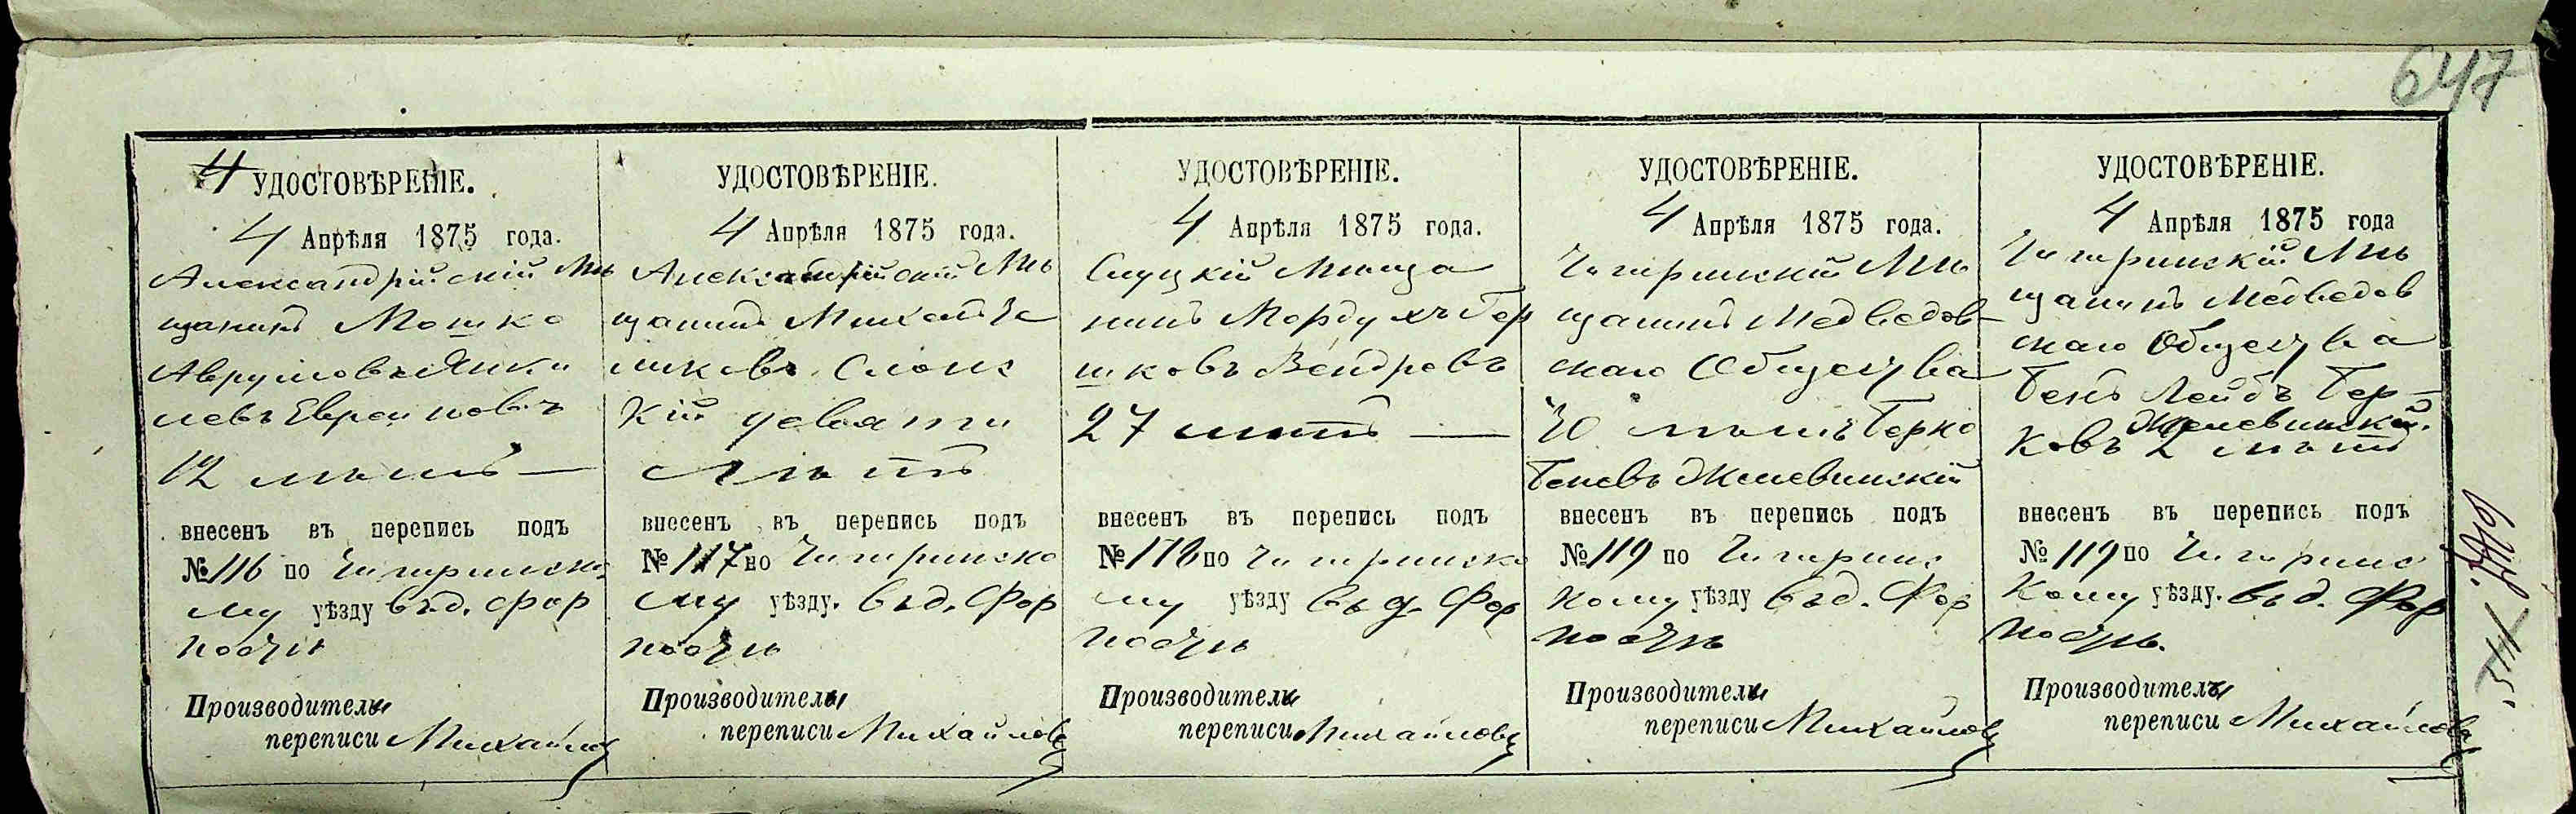 647
УДОСТОВѢРЕНІЕ.
4 Апрѣля 1875 года.
Александрійскій Мѣ
щанинъ Мошко
Аврумовъ Янки
левъ
12 лѣтъ —
внесенъ въ перепись подъ
№ 116 по Чигиринско
му уѣзду въ д. Фор
постѣ
Производитель
переписи Михайловъ
УДОСТОВѢРЕНІЕ.
4 Апрѣля 1875 года.
Александрійскій Мѣ
щанинъ
кій девяти
лѣтъ
внесенъ въ перепись подъ
№ 117 по Чигиринско
му уѣзду. въ д. Фор
постѣ
Производитель
переписи Михайловъ
УДОСТОВѢРЕНІЕ.
4 Апрѣля 1875 года.
Слуцкій Мѣща
нинъ Мордухъ Гер
шковъ Вендровъ
27 лѣтъ —
внесенъ въ перепись подъ
№ 118 по Чигиринско
му уѣзду въ д. Фор
постѣ
Производитель
переписи Михайловъ
УДОСТОВѢРЕНІЕ.
4 Апрѣля 1875 года.
Чигиринскій Мѣ
щанинъ Медведов-
скаго Общества
30 лѣтъ Берко
Беневъ
внесенъ въ перепись подъ
№ 119 по Чигирин
кому уѣзду въ д. Фор
постѣ
Производитель
переписи Михайловъ
УДОСТОВѢРЕНІЕ.
4 Апрѣля 1875 года
Чигиринскій Мѣ
щанинъ Медведов
скаго Общества
Лейбъ Бер-
ковъ 2 лѣтъ
внесенъ въ перепись подъ
№ 119 по Чигирин
кому уѣзду. въ д. Фор
постѣ.
Производитель
переписи Михайловъ